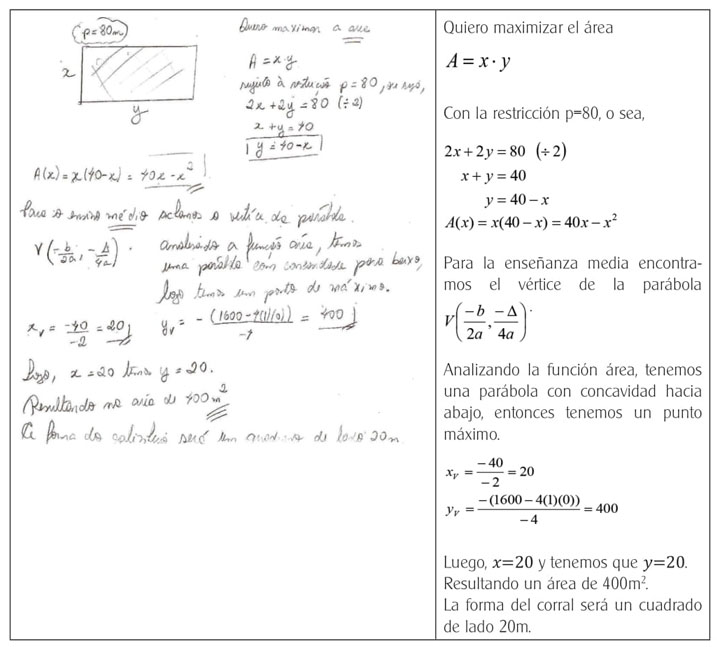 p=80m
x
y
Quero maximizar a área
A = x·y
sujeito à restrição p=80, ou seja,
2x+2y=80 (÷2)
x+y=40
y=40-x
A(x) = x(40-x) = 40x-x²
Para o ensino médio achamos o vértice da parábola.
V(-b/2a, -Δ/4a).
analisando a função área, temos
uma parábola com concavidade para baixo,
logo temos um ponto de máximo.
x_v = -40/-2 = 20
y_v = -(1600-4(1)(0))/-4 = 400
Logo, x=20 temos y=20.
Resultando na área de 400m²
A forma do será um de lado 20m.
Quiero maximizar el área
A = x · y
Con la restricción p=80, o sea,
2x + 2y = 80 (÷2)
x + y = 40
y = 40 − x
A(x) = x(40 − x) = 40x − x²
Para la enseñanza media encontra-
mos el vértice de la parábola
V(-b/2a, -Δ/4a).
Analizando la función área, tenemos
una parábola con concavidad hacia
abajo, entonces tenemos un punto
máximo.
x_V = -40/-2 = 20
y_V = -(1600 − 4(1)(0))/-4 = 400
Luego, x=20 y tenemos que y=20.
Resultando un área de 400m².
La forma del corral será un cuadrado
de lado 20m.